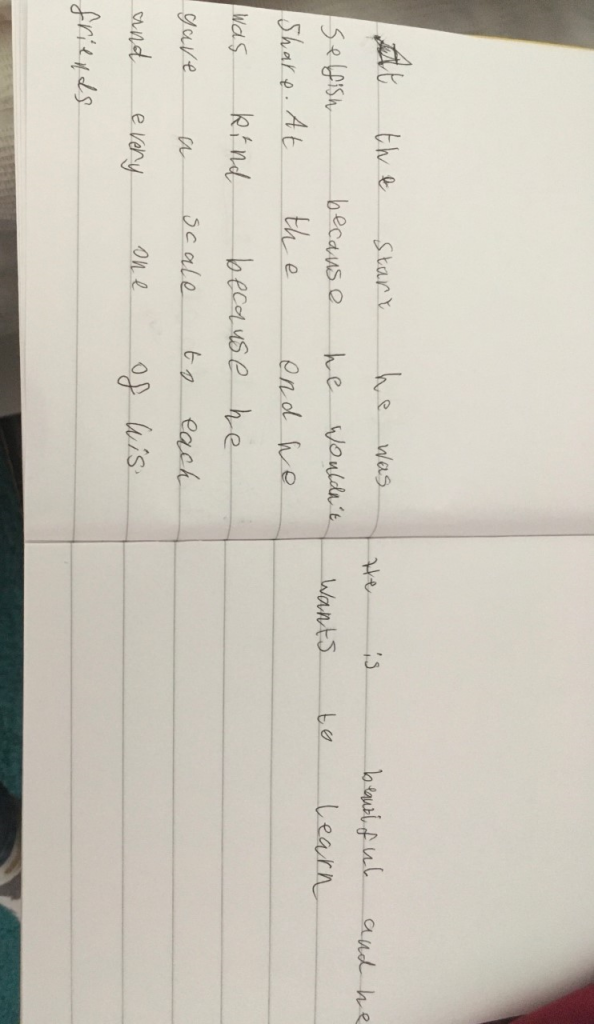 At the start he was
selfish because he wouldn't
share. At the end he
was kind because he
gave a scale to each
and every one of his.
friends
He is beautiful and he
wants to learn